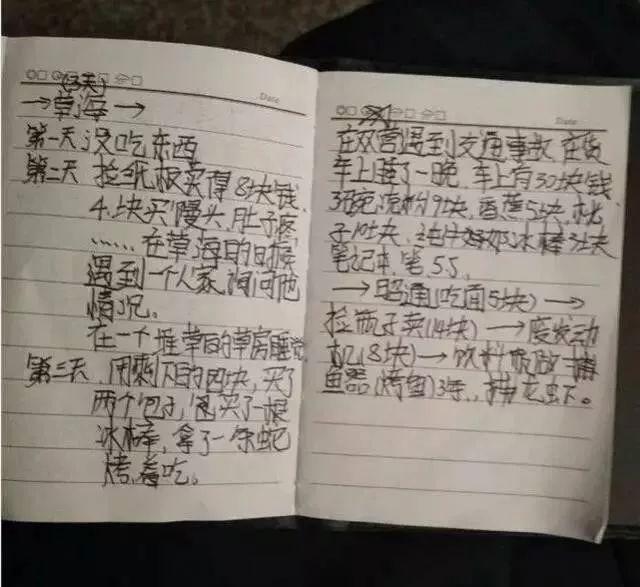 (3天)
→草海→
第一天没吃东西
第二天 捡纸板卖得8块钱,
4块买馒头,肚子疼
……在草海的日子
遇到一个人家,询问他
情况。
在一个堆草的草房睡觉,
第三天,用剩下的四块,买了
两个包子,还买了一根
冰棒,拿了一条蛇
烤着吃。
Date
在双营遇到交通事故,在货
车上睡了一晚,车上有30块钱,
3碗泡粉9块,香蕉5块,桃
子10块,纯牛奶冰棒3块
笔记本,笔,5.5,
→昭通(吃面5块)→
捡瓶子卖(14块)→废发动
机(8块)→饮料瓶做捕
鱼器(烤鱼)3条,捕龙虾。
Date